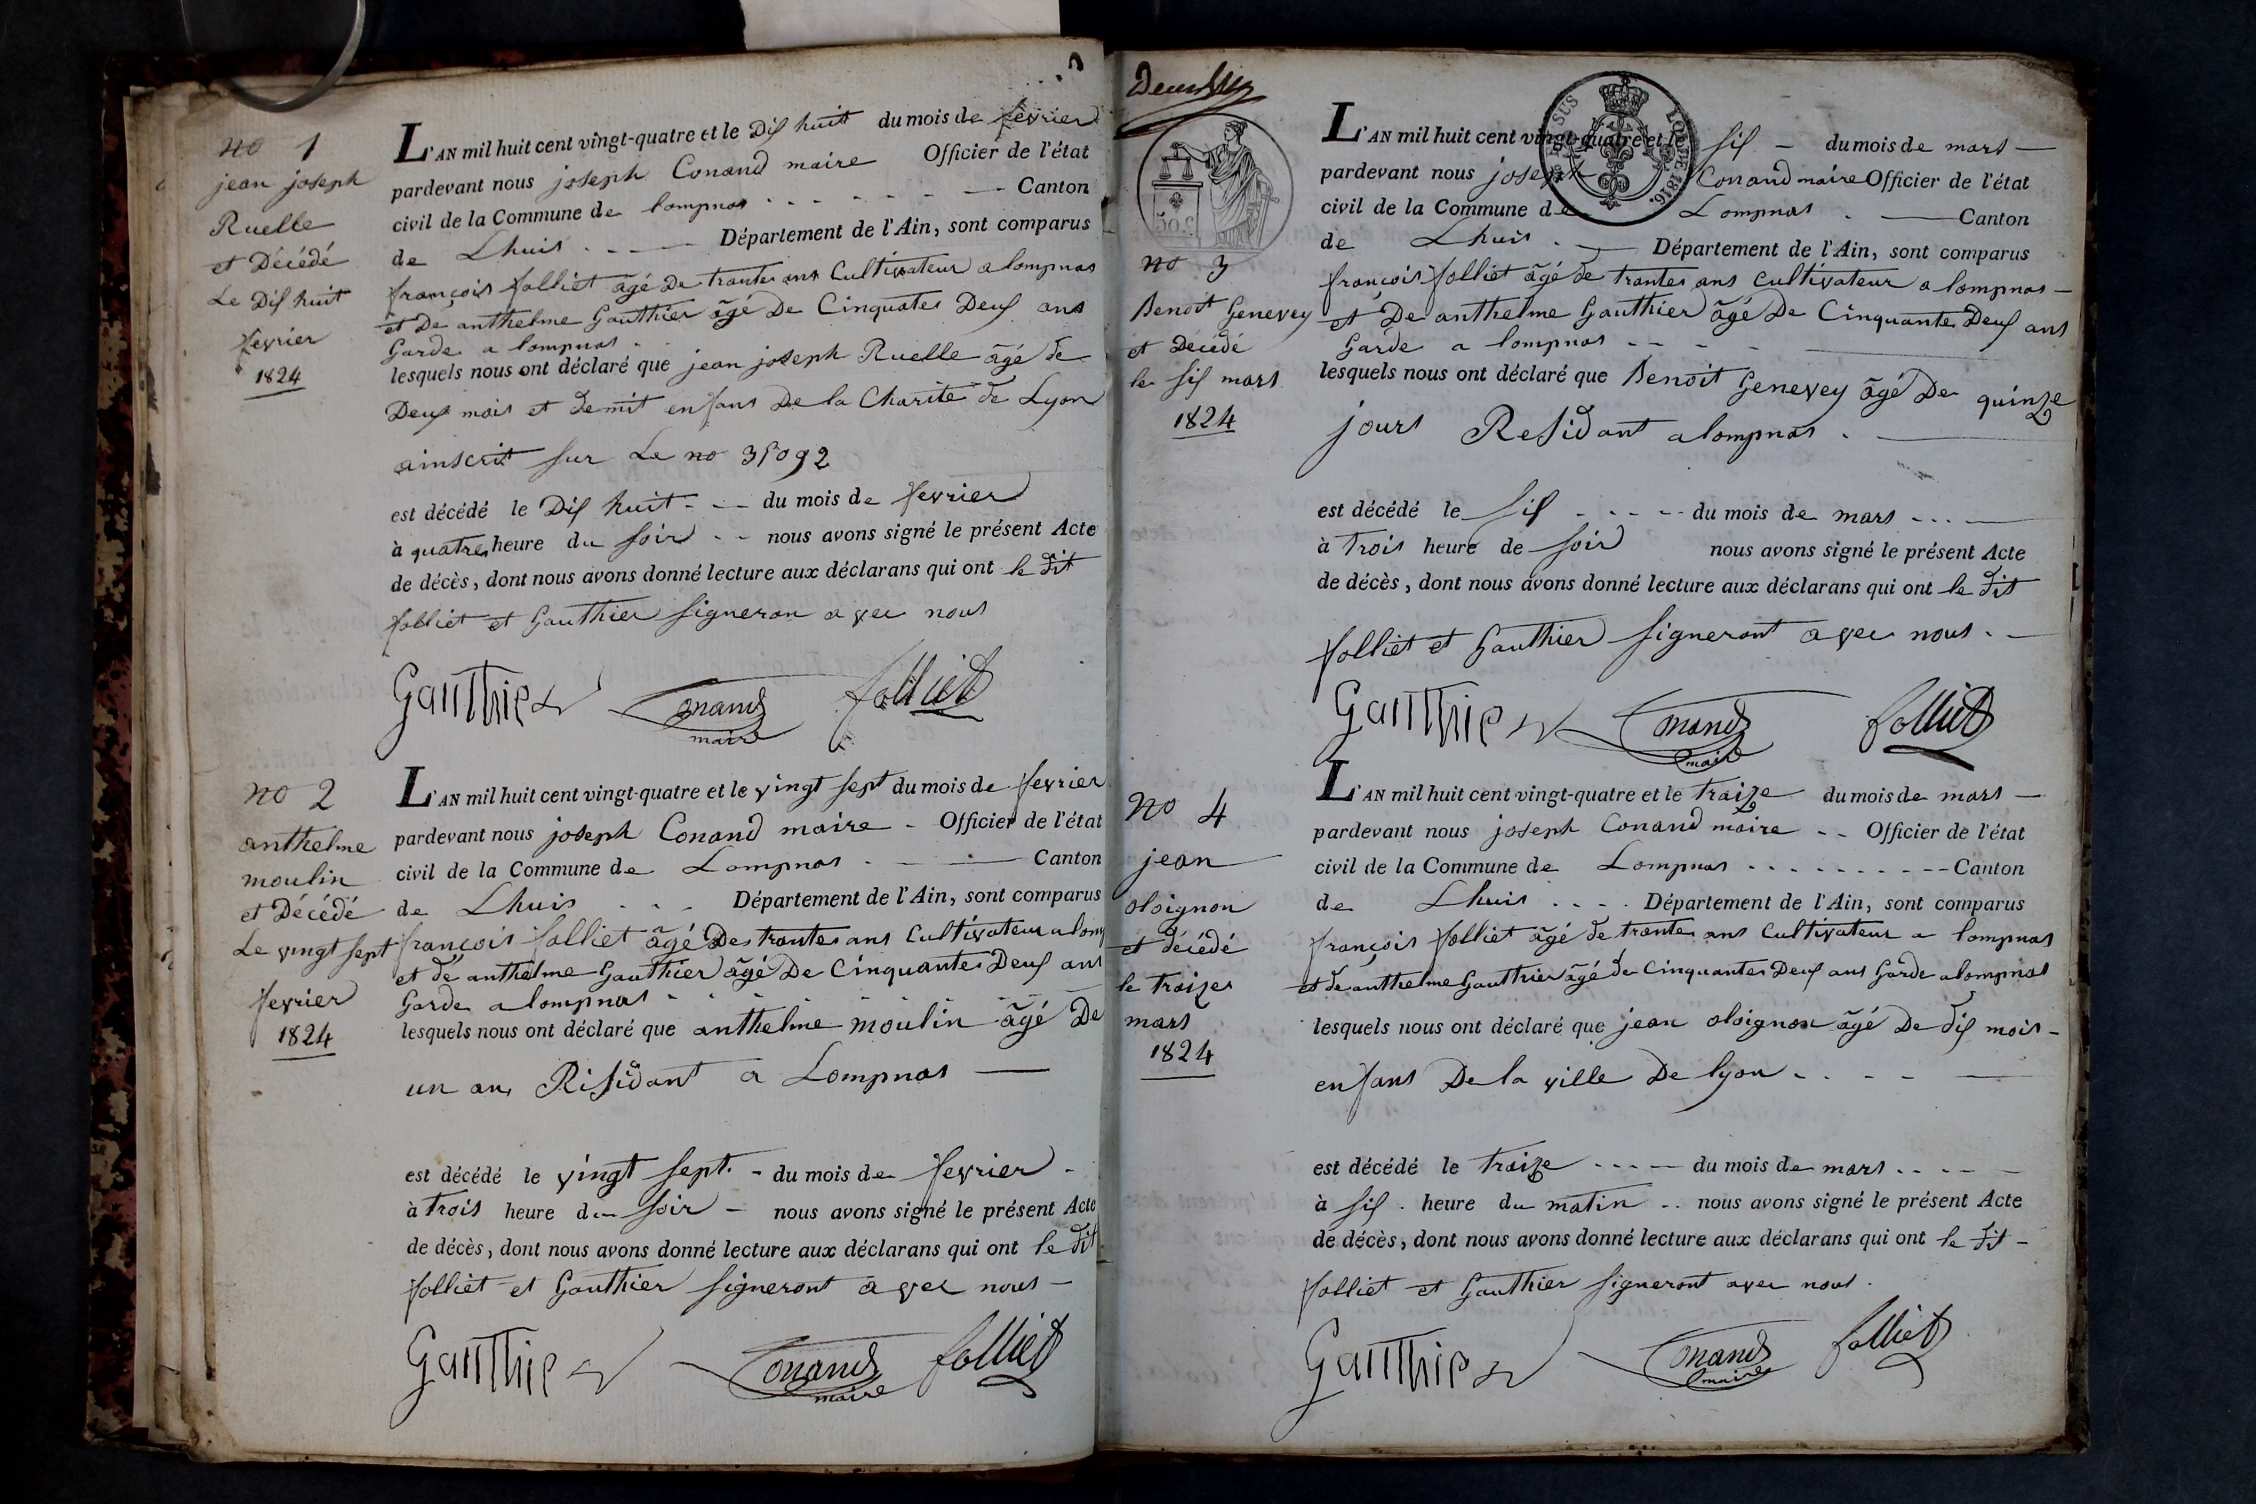 no 1
jean joseph
Ruelle
et Décédé
Le Dis huit
fevrier
1824
L'AN mil huit cent vingt-quatre et le Dis huit du mois de fevrier
pardevant nous joseph Conand maire Officier de l'état
civil de la Commune de lompnas Canton
de Lhuis Département de l'Ain, sont comparus
françois folliet âgé De trantes ans Cultivateur a lompnas
et De anthelme Gauthier âgé De Cinquates Deus ans
Garde a lompnas
lesquels nous ont déclaré que jean joseph Ruelle âgé de
Deus mois et demit enfans De la Charité de Lyon
ainscrit sur Le no 35092
est décédé le Dis huit du mois de fevrier
à quatre heure du soir nous avons signé le présent Acte
de décès, dont nous avons donné lecture aux déclarans qui ont le dit
folliet et Gauthier signeron avec nous
Gauthier Conand maire folliet
no 2
anthelme
moulin
et Décédé
Le vingt sept
fevrier
1824
L'AN mil huit cent vingt-quatre et le vingt sept du mois de fevrier
pardevant nous joseph Conand maire Officier de l'état
civil de la Commune de Lompnas Canton
de Lhuis Département de l'Ain, sont comparus
françois folliet âgé Des trantes ans Cultivateur a lomp
et de anthelme Gauthier âgé De Cinquantes Deus ans
Garde a lompnas
lesquels nous ont déclaré que anthelme moulin âgé De
un an, Risidant a Lompnas
est décédé le vingt sept. du mois de fevrier
à trois heure du soir nous avons signé le présent Acte
de décès, dont nous avons donné lecture aux déclarans qui ont le dit
folliet et Gauthier signeront avec nous
Gauthier Conand maire folliet
SUS
LOI DE 1816.
50c
no 3
Benoit Genevey
et Décédé
le sis mars
1824
L'AN mil huit cent vingt-quatre et le sis du mois de mars
pardevant nous joseph Conand maire Officier de l'état
civil de la Commune de Lompnas Canton
de Lhuis Département de l'Ain, sont comparus
françois folliet âgé de trantes ans Cultivateur a lompnas
et De anthelme Gauthier âgé De Cinquantes Deus ans
Garde a lompnas
lesquels nous ont déclaré que Benoit Genevey âgé De quinze
jours Residant a lompnas
est décédé le sis du mois de mars
à trois heure de soir nous avons signé le présent Acte
de décès, dont nous avons donné lecture aux déclarans qui ont le dit
folliet et Gauthier signeront avec nous
Gauthier Conand maire folliet
no 4
jean
oloignon
et décédé
le traizes
mars
1824
L'AN mil huit cent vingt-quatre et le traize du mois de mars
pardevant nous joseph Conand maire Officier de l'état
civil de la Commune de Lompnas Canton
de Lhuis Département de l'Ain, sont comparus
françois folliet âgé de trantes ans Cultivateur a lompnas
et de anthelme Gauthier âgé de Cinquantes Deus ans Garde a lompnas
lesquels nous ont déclaré que jean oloignon âgé De dis mois
enfans De la ville De lyon
est décédé le traize du mois de mars
à sis heure du matin nous avons signé le présent Acte
de décès, dont nous avons donné lecture aux déclarans qui ont le dit
folliet et Gauthier signeront avec nous.
Gauthier Conand maire folliet